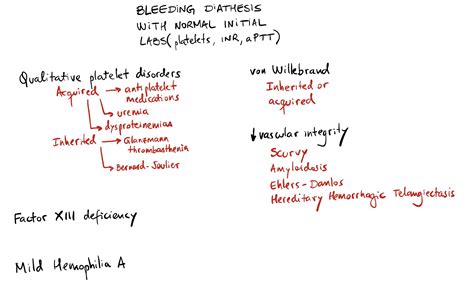 BLEEDING DIATHESIS
WITH NORMAL INITIAL
LABS (platelets, INR, aPTT)
Qualitative platelet disorders
Acquired → antiplatelet
medications
uremia
dysproteinemias
Inherited → Glanzmann
thrombasthenia
Bernard-Soulier
Factor XIII deficiency
Mild Hemophilia A
von Willebrand
Inherited or
acquired
↓vascular integrity
Scurvy
Amyloidosis
Ehlers-Danlos
Hereditary Hemorrhagic Telangiectasis